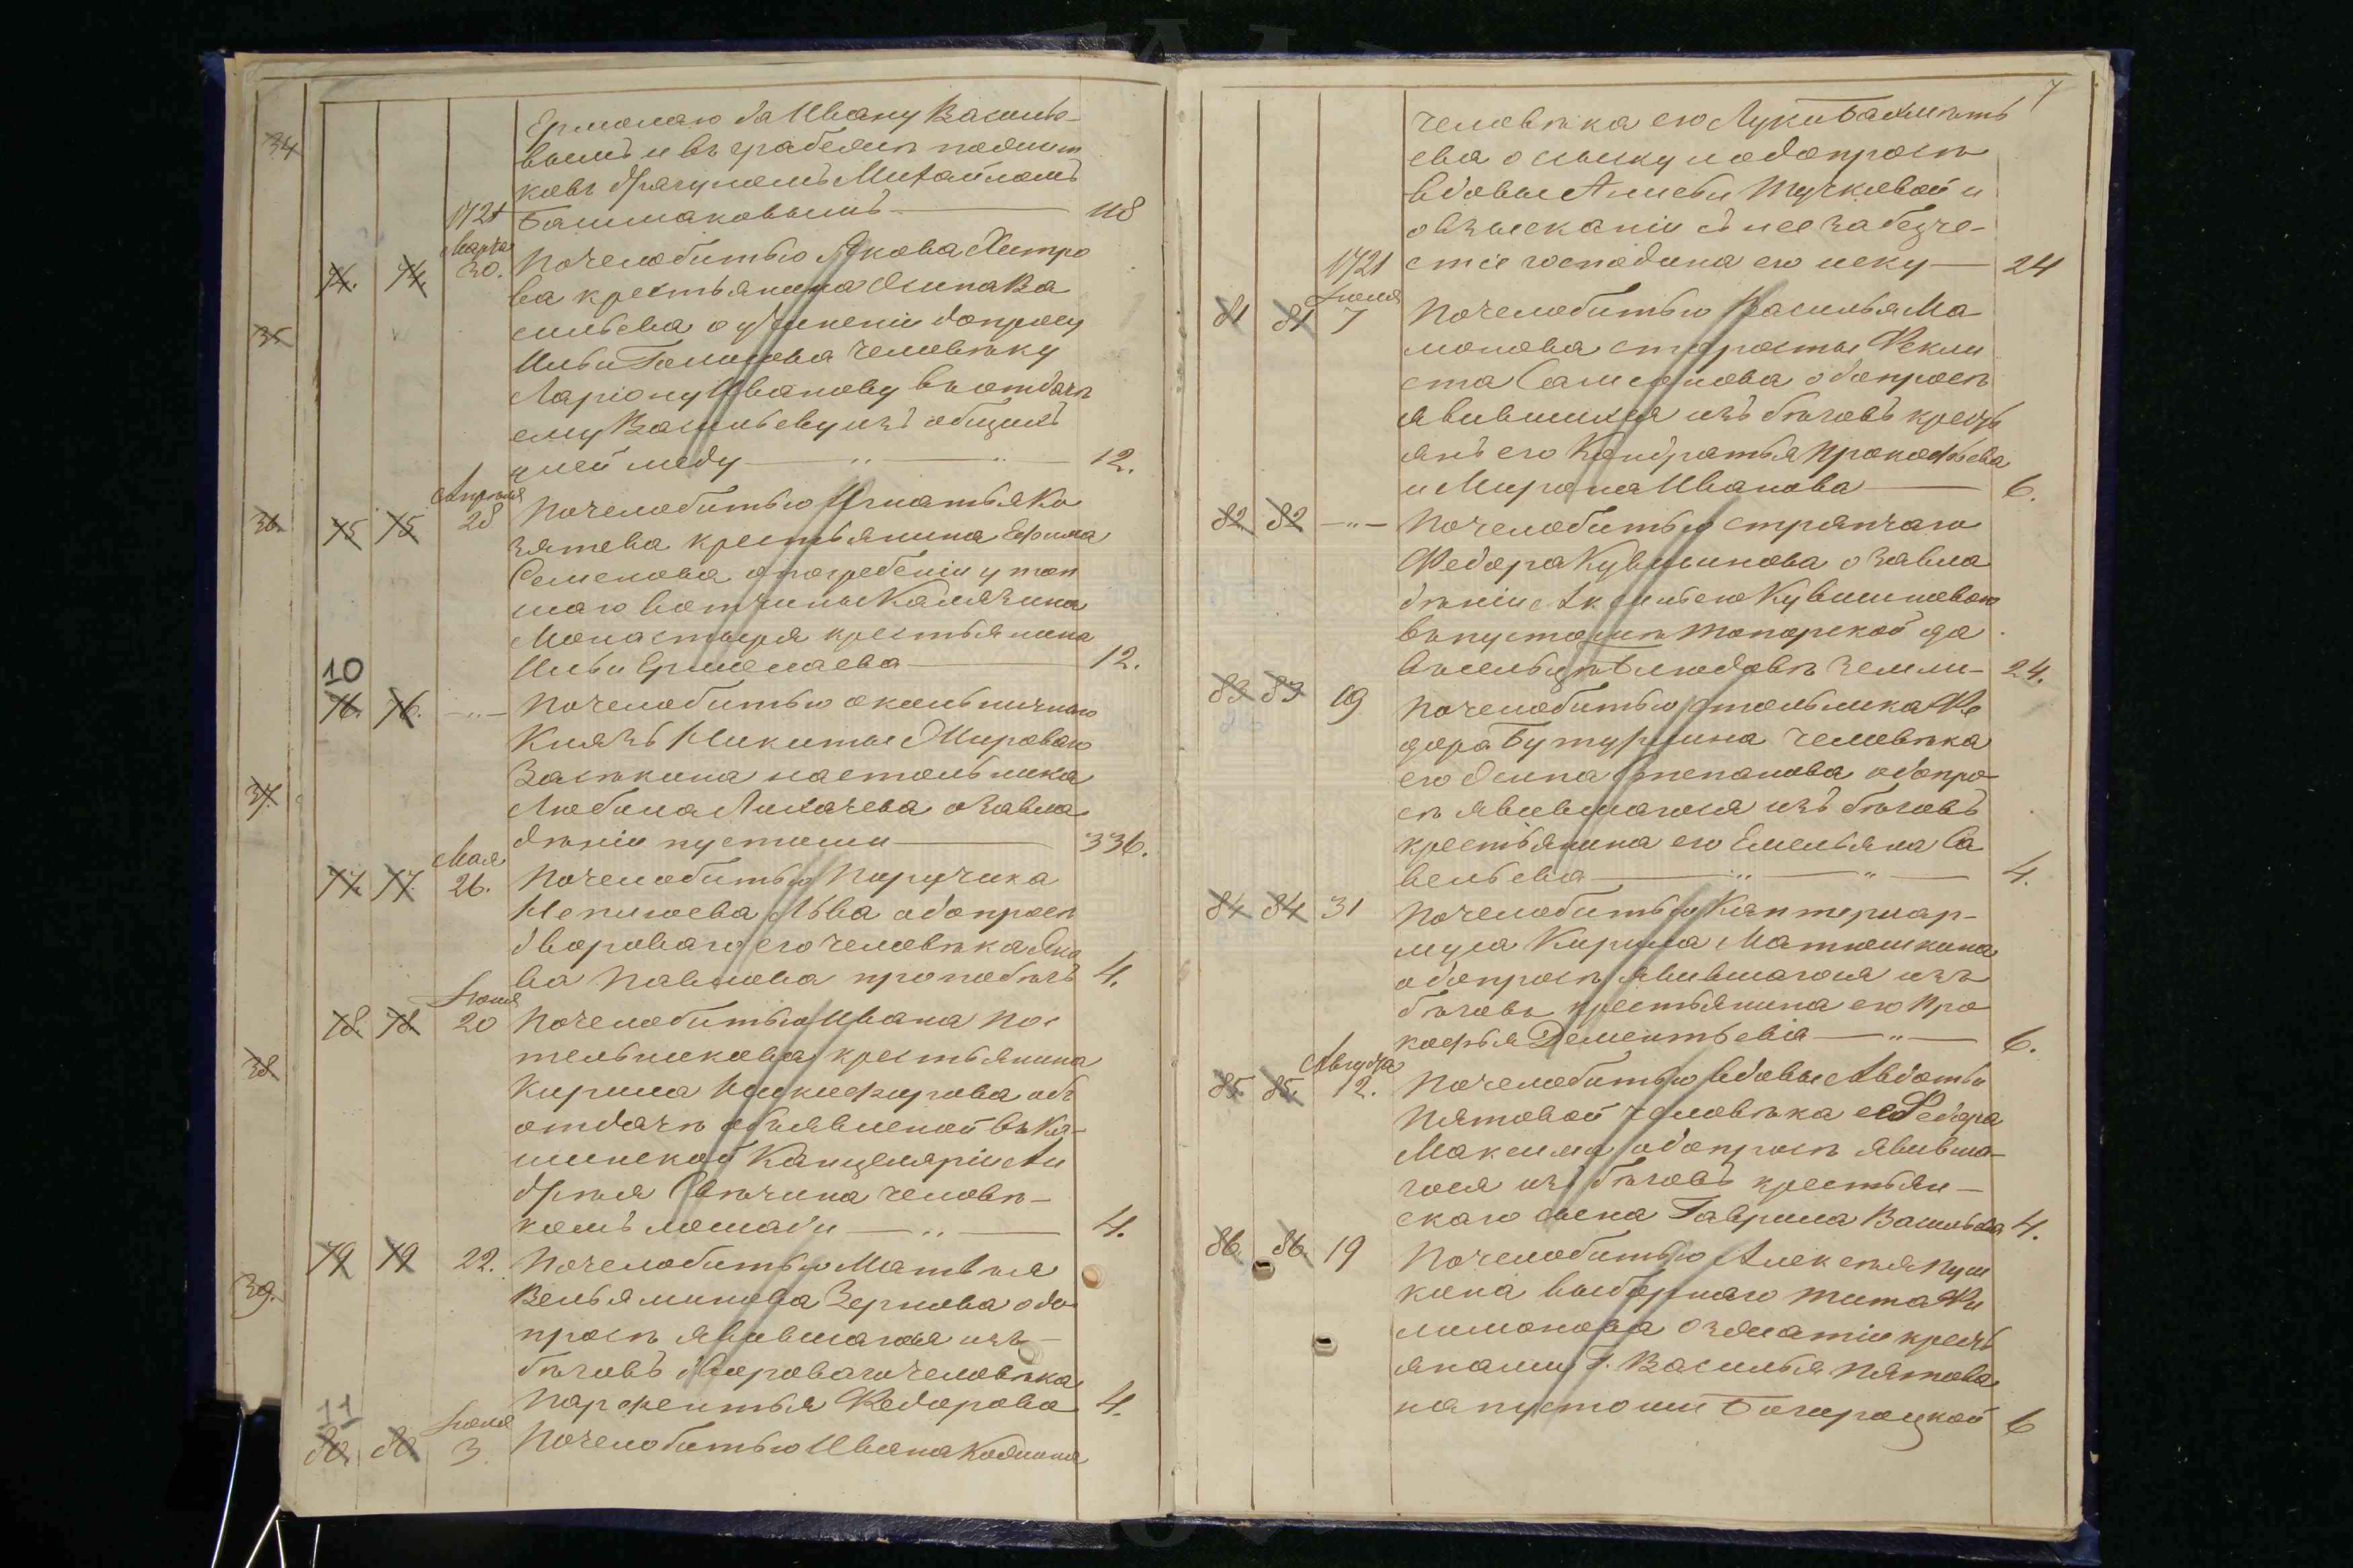 34
Ермолаю да Ивану Василье-
вымъ и въ грабеже пожит
ковъ драгуномъ Михайломъ
1721 Башмаковымъ — 118
Марта
74. 74. 30. По челобитью Якова Хитро
ва крестьянина Осипа Ва
35
сильева о учинении допросу
Ильи человѣку
Ларіону Иванову въ отдачѣ
ему Васильеву изъ общихъ
пчел меду — " — " — 12.
Апрѣля
36. 75 75 28 По челобитью Игнатья Ко
зятева крестьянина Ефима
Семенова о погребеніи утоп
шаго вотчины Калязина
Монастыря крестьянина
Ильи — 12.
10
76. 76. — " — По челобитью окольничаго
Князь Никиты Мироваго
Засѣкина на стольника
37.
Любима Лихачева о завла
дѣніи пустоши — 336.
Мая
77. 77. 26. По челобитью Поручика
Неплюева Льва о допросѣ
двороваго его человѣка Яко
ва Павлова про побѣгъ 4.
Іюня
78. 78. 20 По челобитью Ивана По-
тельникова крестьянина
38
Кирила Никифорова объ
отдачѣ объявленой въ Ка-
шинской Канцеляріи Ан
дрѣя Свѣчина человѣ-
комъ лошади — " — 4.
79 79 22. По челобитью Матвѣя
39.
Вельяминова Зернова о до
просѣ явившагося изъ
бѣговъ двороваго человѣка
Парфентья Федорова 4.
11
Іюля
80 80 3 По челобитью Ивана Кожина
7
человѣка его Луки
ева о сыску и о допросѣ
вдовы Тучковой и
о взысканіи съ нее за безче-
1721 стіе господина его иску — 24
Іюля
81 81 7 По челобитью Василья Ма
монова старосты Фекли
ста Самсонова о допросѣ
явившихся изъ бѣговъ кресть
янъ его Кондратья Прокофьева
и Мирона Иванова — 6.
82 82 — " — По челобитью стряпчаго
Федора Кувшинова о завла
дѣніи Кувшиновою
въ пустошѣ Топорской да
въ сельцѣ Блюдовѣ земли — 24.
83 83 19 По челобитью стольника Фе
дора Бутурлина человѣка
его Осипа Степанова о допро
сѣ явившагося изъ бѣговъ
крестьянина его Емельяна Са
вельева — " — " — 4.
84 84 31 По челобитью Каптернар-
муса Кирила Матюшкина
о допросѣ явившагося изъ
бѣговъ крестьянина его Про
кофья Дементьевіа — " — 6.
Августа
85. 85. 12. По челобитью вдовы Авдотьи
Пятовой человѣка ее Федора
Максима о допросѣ явивша-
гося изъ бѣговъ крестьян-
скаго сына Гаврила Васильева 4.
86. 86. 19 По челобитью Алексѣя Пуш
кина выборнаго Тита Фи
лимонова о зжатіи кресть
янами Г. Василья Пятова
на пустоши Богороцкой 6